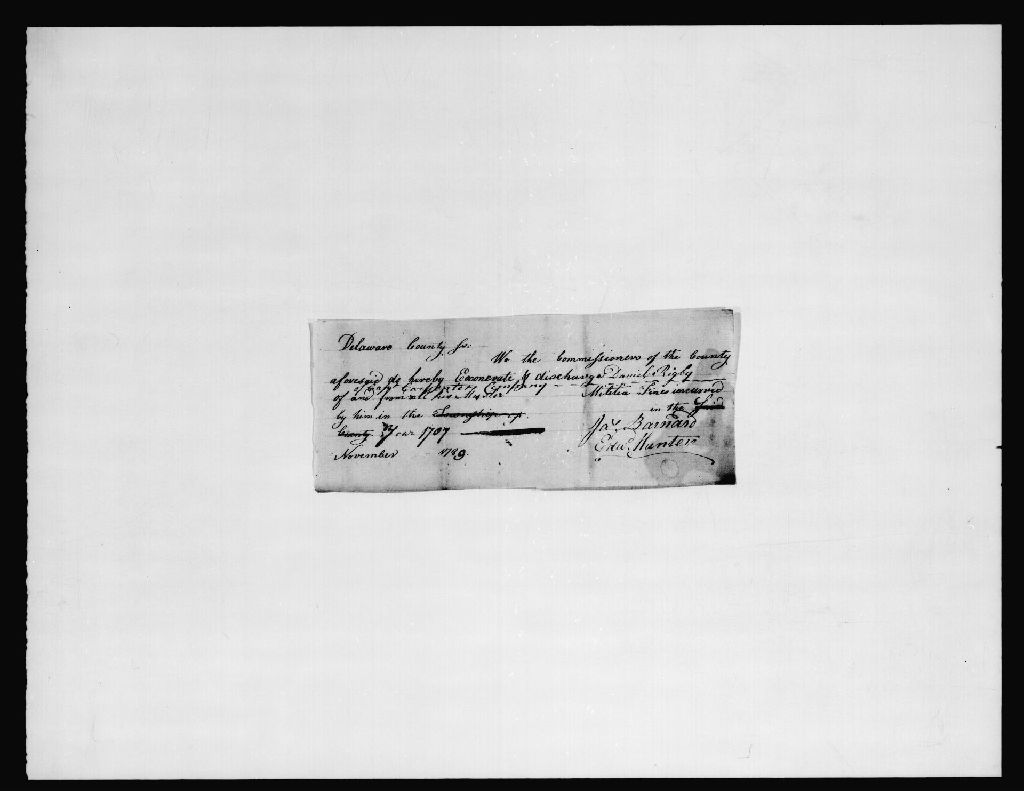 Delaware County ss.
We the Commissioners of the County
aforesaid do hereby Exonerate & discharge Daniel Rigby
of and from all his Militia Fines incurred
by him in the Township of in the Said
County Year 1787
Jas. Barnard
Edwd. Hunter
November 1789